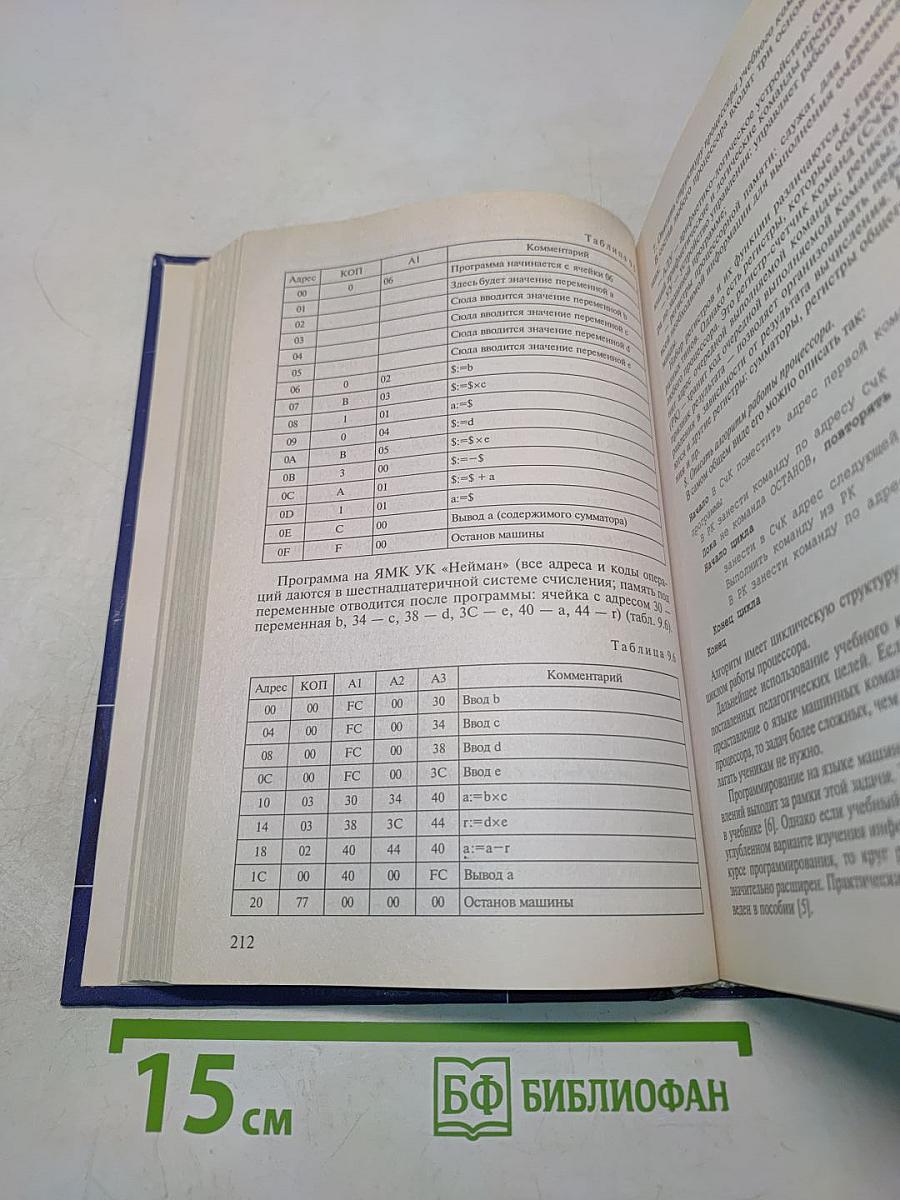 Таблица 9.5
Адрес КОП А1 Комментарий
00 0 06 Программа начинается с ячейки 06
01 Здесь будет значение переменной a
02 Сюда вводится значение переменной b
03 Сюда вводится значение переменной c
04 Сюда вводится значение переменной d
05 Сюда вводится значение переменной e
06 0 02 $:=b
07 B 03 $:=$×c
08 1 01 a:=$
09 0 04 $:=d
0A B 05 $:=$×e
0B 3 00 $:=−$
0C A 01 $:=$ + a
0D 1 01 a:=$
0E C 00 Вывод a (содержимого сумматора)
0F F 00 Останов машины
Программа на ЯМК УК «Нейман» (все адреса и коды опера-
ций даются в шестнадцатеричной системе счисления; память под
переменные отводится после программы: ячейка с адресом 30 —
переменная b, 34 — c, 38 — d, 3C — e, 40 — a, 44 — r) (табл. 9.6).
Таблица 9.6
Адрес КОП А1 А2 А3 Комментарий
00 00 FC 00 30 Ввод b
04 00 FC 00 34 Ввод c
08 00 FC 00 38 Ввод d
0C 00 FC 00 3C Ввод e
10 03 30 34 40 a:=b×c
14 03 38 3C 44 r:=d×e
18 02 40 44 40 a:=a−r
1C 00 40 00 FC Вывод a
20 77 00 00 00 Останов машины
212
процессора учебного
процессора входят три
арифметико-логическое устройство:
и логические команды
управления: управляет работой
программе;
процессорной памяти: служат для
информации для выполнения очередной
регистров и их функции различаются у
Однако есть регистры, которые
процессора. Это регистр-счетчик команд (СчК)
адрес очередной выполняемой команды; регистр
(РК) — хранит код очередной выполняемой команды;
результата — позволяет организовывать
в зависимости от результата вычисления.
и другие регистры: сумматоры, регистры
и пр.
Описать алгоритм работы процессора.
В самом общем виде его можно описать так:
Начало
в СчК поместить адрес первой
программы
В РК занести команду по адресу СчК
Пока не команда ОСТАНОВ, повторять
Начало цикла
занести в СчК адрес следующей
Выполнить команду из РК
В РК занести команду по
Конец цикла
Конец
Алгоритм имеет циклическую структуру
циклом работы процессора.
Дальнейшее использование учебного
поставленных педагогических целей.
представление о языке машинных
процессора, то задач более сложных, чем
лагать ученикам не нужно.
Программирование на языке
влений выходит за рамки этой задачи.
в учебнике [6]. Однако если учебный
углубленном варианте изучения
курсе программирования, то круг
значительно расширен.
веден в пособии [5].
15 см
БФ БИБЛИОФАН